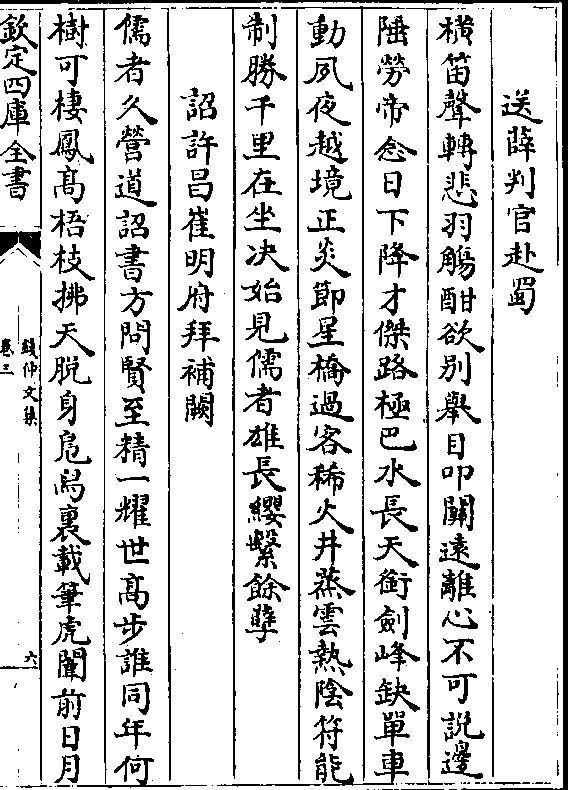 送薛判官赴蜀
橫笛聲轉悲羽觴酣欲别舉目叩關遠離心不可說邊
陲勞帝念日下降才傑路極巴水長天銜劍峰缺單車
動夙夜越境正炎節星橋過客稀火井蒸雲熱陰符能
制勝千里在坐决始見儒者雄長纓繫餘孽
詔許昌崔明府拜補闕
儒者久營道詔書方問賢至精一耀世高步誰同年何
樹可棲鳳高梧枝拂天脱身鳧舄裏載筆虎闈前日月
欽定四庫全書
錢仲文集
卷三
六